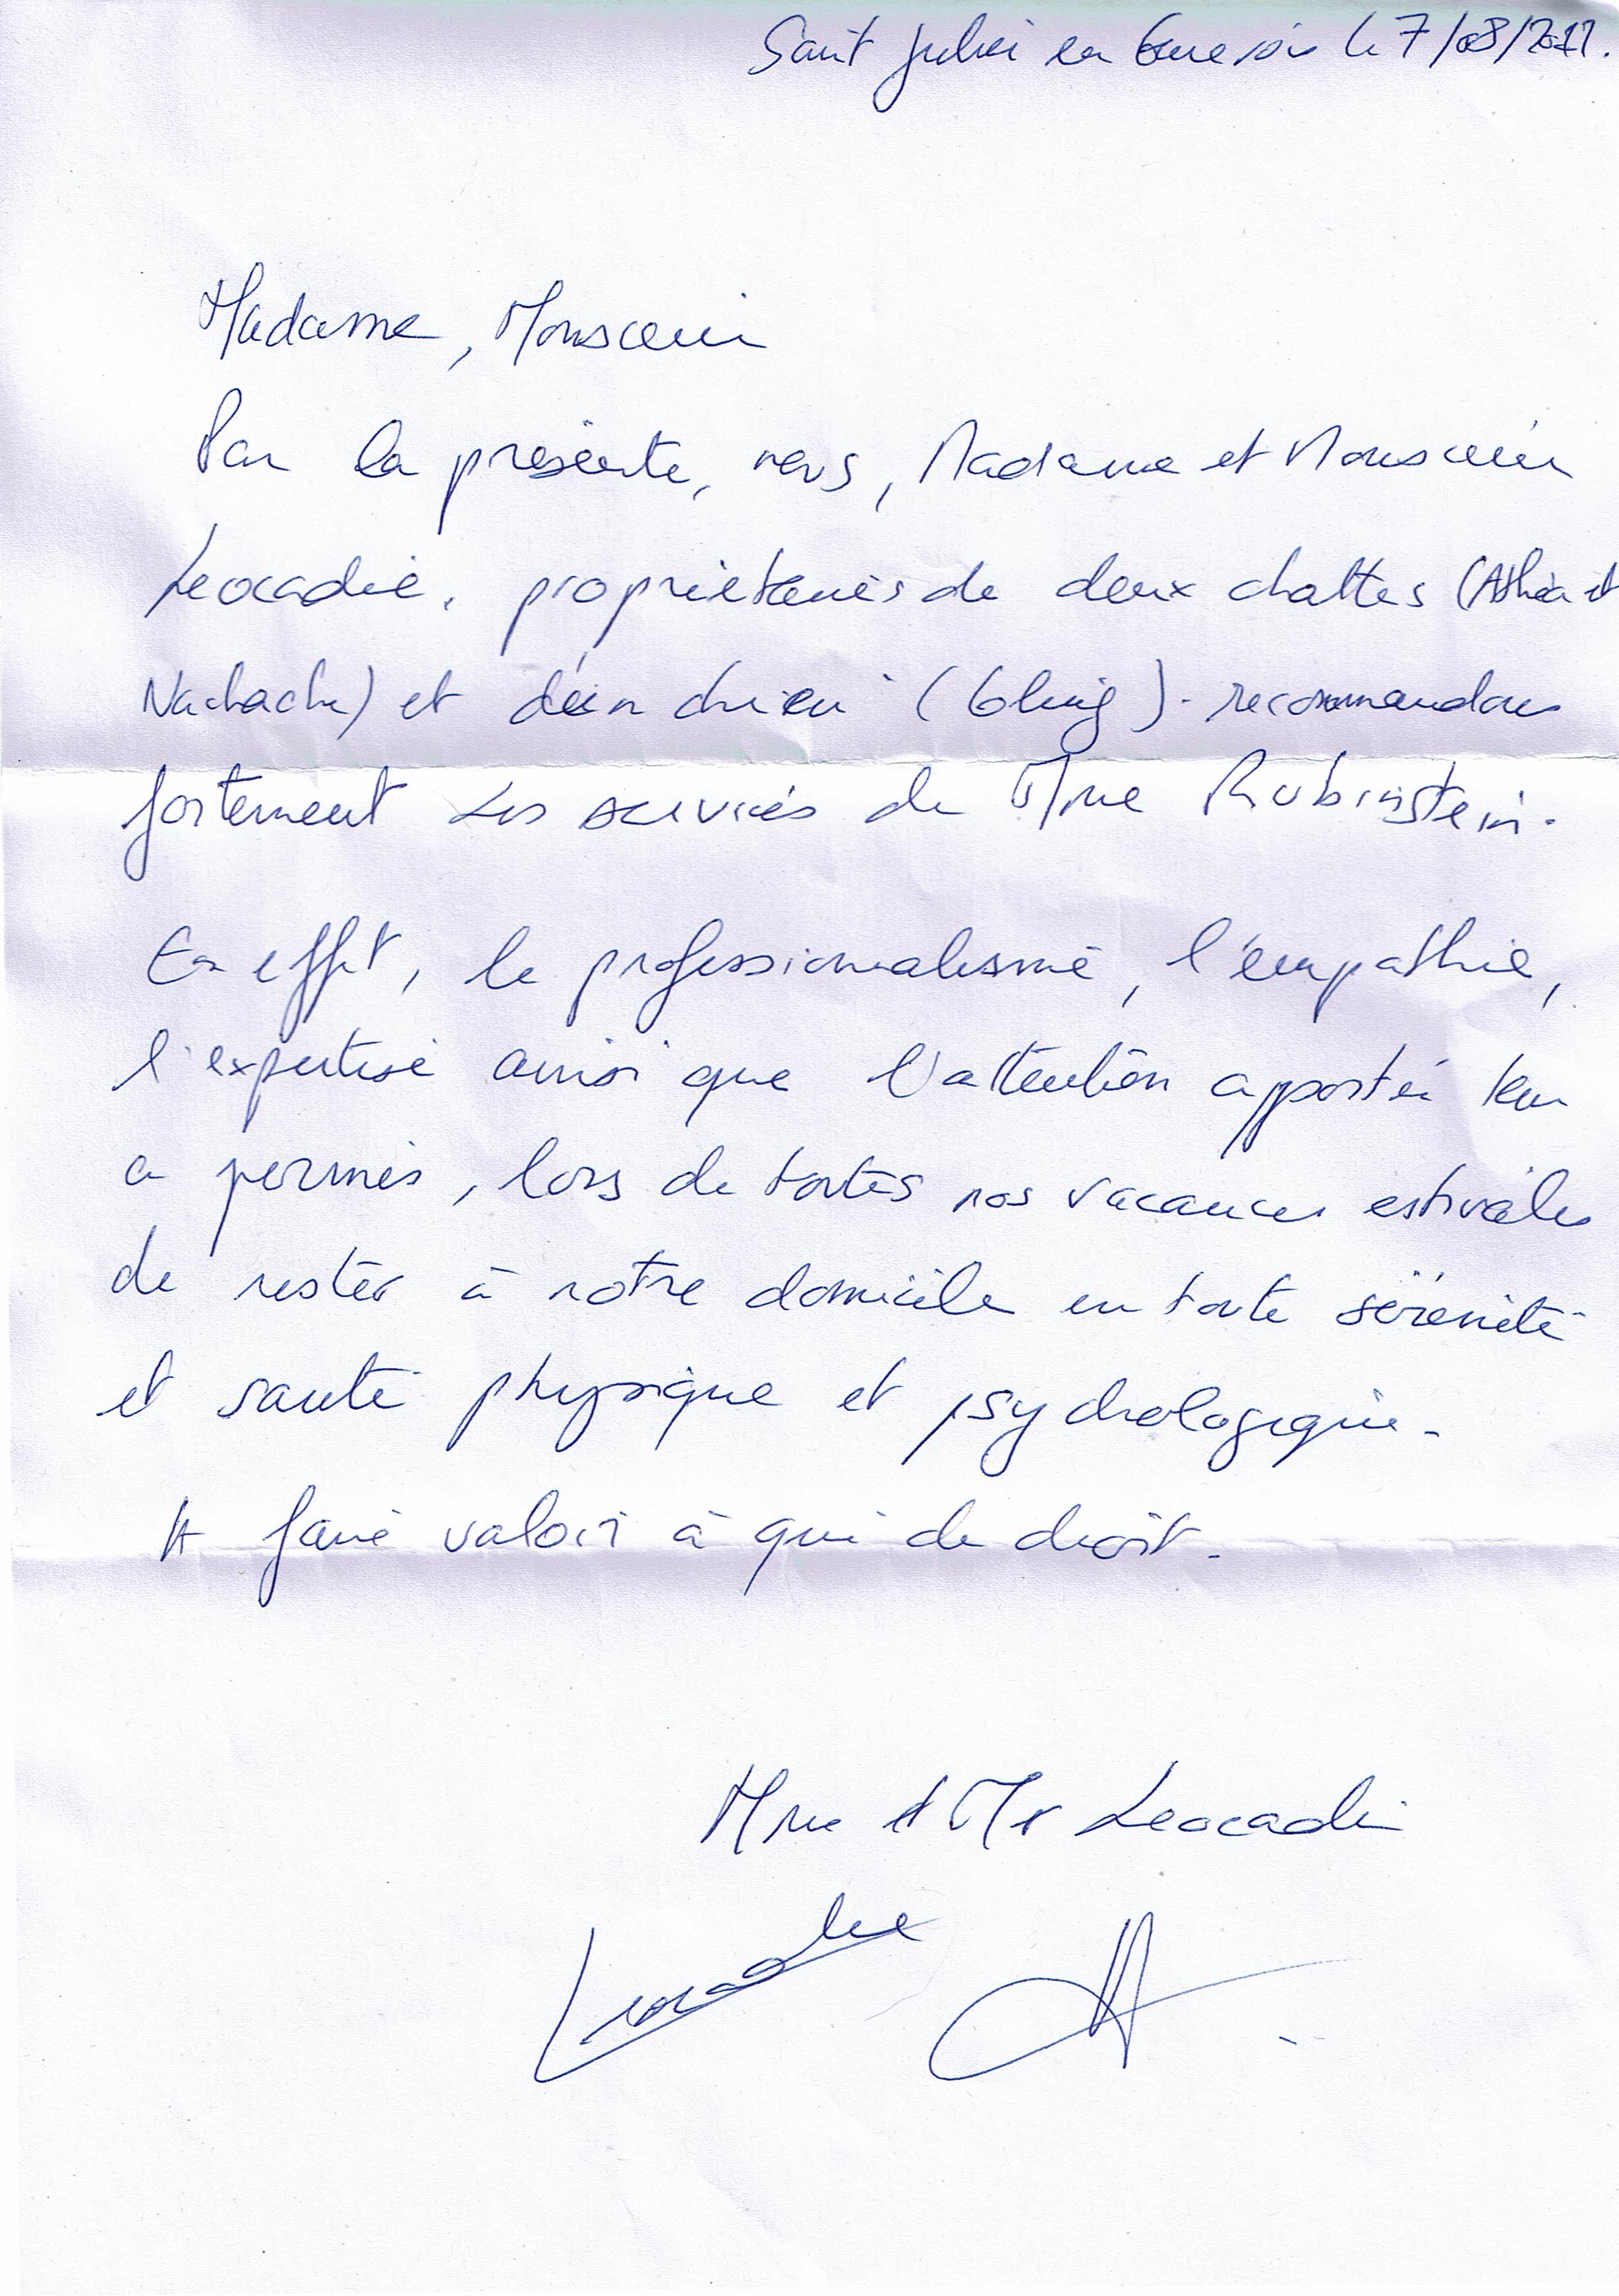 Saint Julien en Genevois le 7/08/
Madame, Monsieur
Par la présente, nous, Madame et Monsieur
Leocadie, propriétaires de deux chattes (Athéa et
et d'un chien ( ). recommandons
fortement les services de Mme Rubinstein.
En effet, le professionnalisme, l'empathie,
l'expertise ainsi que l'attention apportée leur
a permis, lors de toutes nos vacances estivales
de rester à notre domicile en toute sérénité
et santé physique et psychologique.
A faire valoir à qui de droit.
Mme et Mr Leocadie